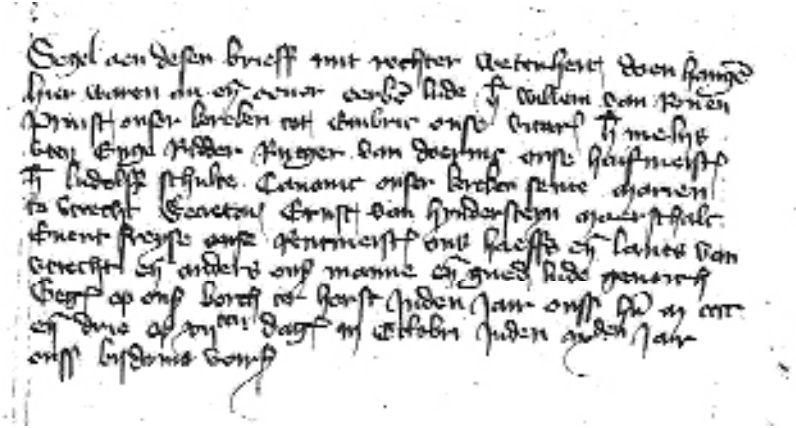 Segel aen desen brieff mit rechter wetenheit doen hangen
hier waren an en over eerbe lude h willem van
Proist onser kercken tot Embric onse vicari h melys
uten Enge Ridder Rutger van doernic onse hofmeist
h ludolff schulte Canonic onser kercken sente marien
to utrecht Secretari Ernst van hynderstein maerschalc
Evert freyse onse Rentmeist ons haeffs en lants van
utrecht en anders onse manne en gueder lude genoech
Geg op onse borch ter horst Inden Jair onss hn m cccc
en drie op ten dag in Octobri Inden Jair
onss bisdoms vors